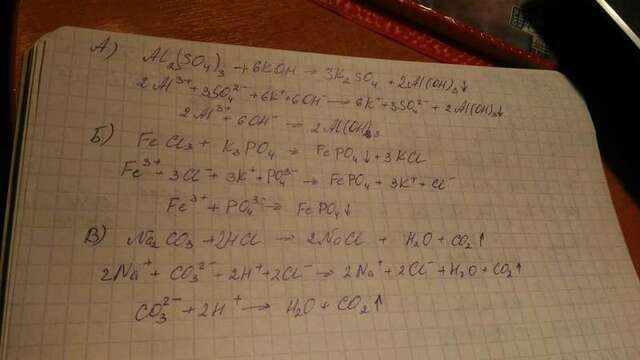 А) Al₂(SO₄)₃ + 6KOH → 3K₂SO₄ + 2Al(OH)₃↓
2Al³⁺ + 3SO₄²⁻ + 6K⁺ + 6OH⁻ → 6K⁺ + 3SO₄²⁻ + 2Al(OH)₃↓
2Al³⁺ + 6OH⁻ → 2Al(OH)₃
Б) FeCl₃ + K₃PO₄ → FePO₄↓ + 3KCl
Fe³⁺ + 3Cl⁻ + 3K⁺ + PO₄³⁻ → FePO₄ + 3K⁺ + Cl⁻
Fe³⁺ + PO₄³⁻ → FePO₄↓
В) Na₂CO₃ + 2HCl → 2NaCl + H₂O + CO₂↑
2Na⁺ + CO₃²⁻ + 2H⁺ + 2Cl⁻ → 2Na⁺ + 2Cl⁻ + H₂O + CO₂↑
CO₃²⁻ + 2H⁺ → H₂O + CO₂↑